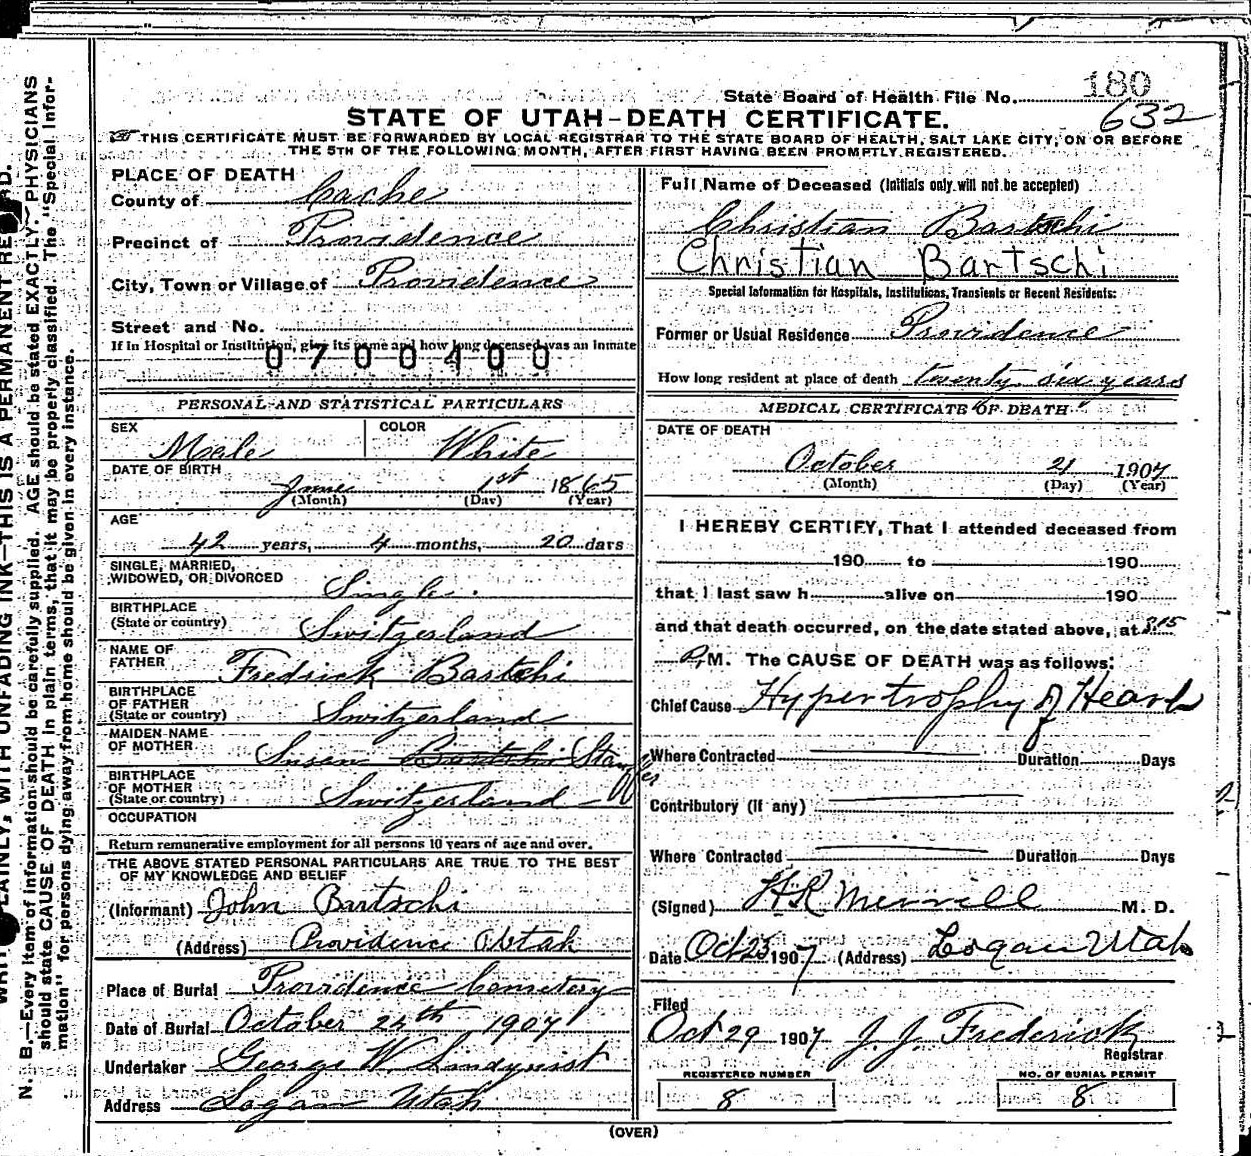 180
State Board of Health File No.
632
STATE OF UTAH-DEATH CERTIFICATE.
THIS CERTIFICATE MUST BE FORWARDED BY LOCAL REGISTRAR TO THE STATE BOARD OF HEALTH, SALT LAKE CITY, ON OR BEFORE
THE 5TH OF THE FOLLOWING MONTH, AFTER FIRST HAVING BEEN PROMPTLY REGISTERED.
PLACE OF DEATH
County of Cache
Precinct of Providence
City, Town or Village of Providence
Street and No.
If in Hospital or Institution, give its name and how long deceased was an inmate
0700400
PERSONAL AND STATISTICAL PARTICULARS
SEX Male COLOR White
DATE OF BIRTH
June 1st 1865
(Month) (Day) (Year)
AGE
42 years, 4 months, 20 days
SINGLE, MARRIED,
WIDOWED, OR DIVORCED Single.
BIRTHPLACE
(State or country) Switzerland
NAME OF
FATHER Fredrick Bartschi
BIRTHPLACE
OF FATHER
(State or country) Switzerland
MAIDEN NAME
OF MOTHER Susan Bartschi Stauffer
BIRTHPLACE
OF MOTHER
(State or country) Switzerland
OCCUPATION
Return remunerative employment for all persons 10 years of age and over.
THE ABOVE STATED PERSONAL PARTICULARS ARE TRUE TO THE BEST
OF MY KNOWLEDGE AND BELIEF
(Informant) John Bartschi
(Address) Providence Utah
Place of Burial Providence Cemetery
Date of Burial October 24th 1907
Undertaker George W. Lindquist
Address Logan Utah
Full Name of Deceased (Initials only will not be accepted)
Christian Bartschi
Christian Bartschi
Special Information for Hospitals, Institutions, Transients or Recent Residents:
Former or Usual Residence Providence
How long resident at place of death twenty six years
MEDICAL CERTIFICATE OF DEATH
DATE OF DEATH
October 21 1907
(Month) (Day) (Year)
I HEREBY CERTIFY, That I attended deceased from
190 to 190
that I last saw h alive on 190
and that death occurred, on the date stated above, at 3:15
P.M. The CAUSE OF DEATH was as follows:
Chief Cause Hypertrophy of Heart
Where Contracted Duration Days
Contributory (if any)
Where Contracted Duration Days
(Signed) H.R. Merrill M. D.
Date Oct 23 1907 (Address) Logan Utah
Filed
Oct 29 1907 J. J. Frederick
Registrar
REGISTERED NUMBER NO. OF BURIAL PERMIT
8 8
(OVER)
PLAINLY, WITH UNFADING INK—THIS IS A PERMANENT RECORD.
N. B.—Every item of information should be carefully supplied. AGE should be stated EXACTLY. PHYSICIANS
should state CAUSE OF DEATH in plain terms, that it may be properly classified. The "Special Infor-
mation" for persons dying away from home should be given in every instance.